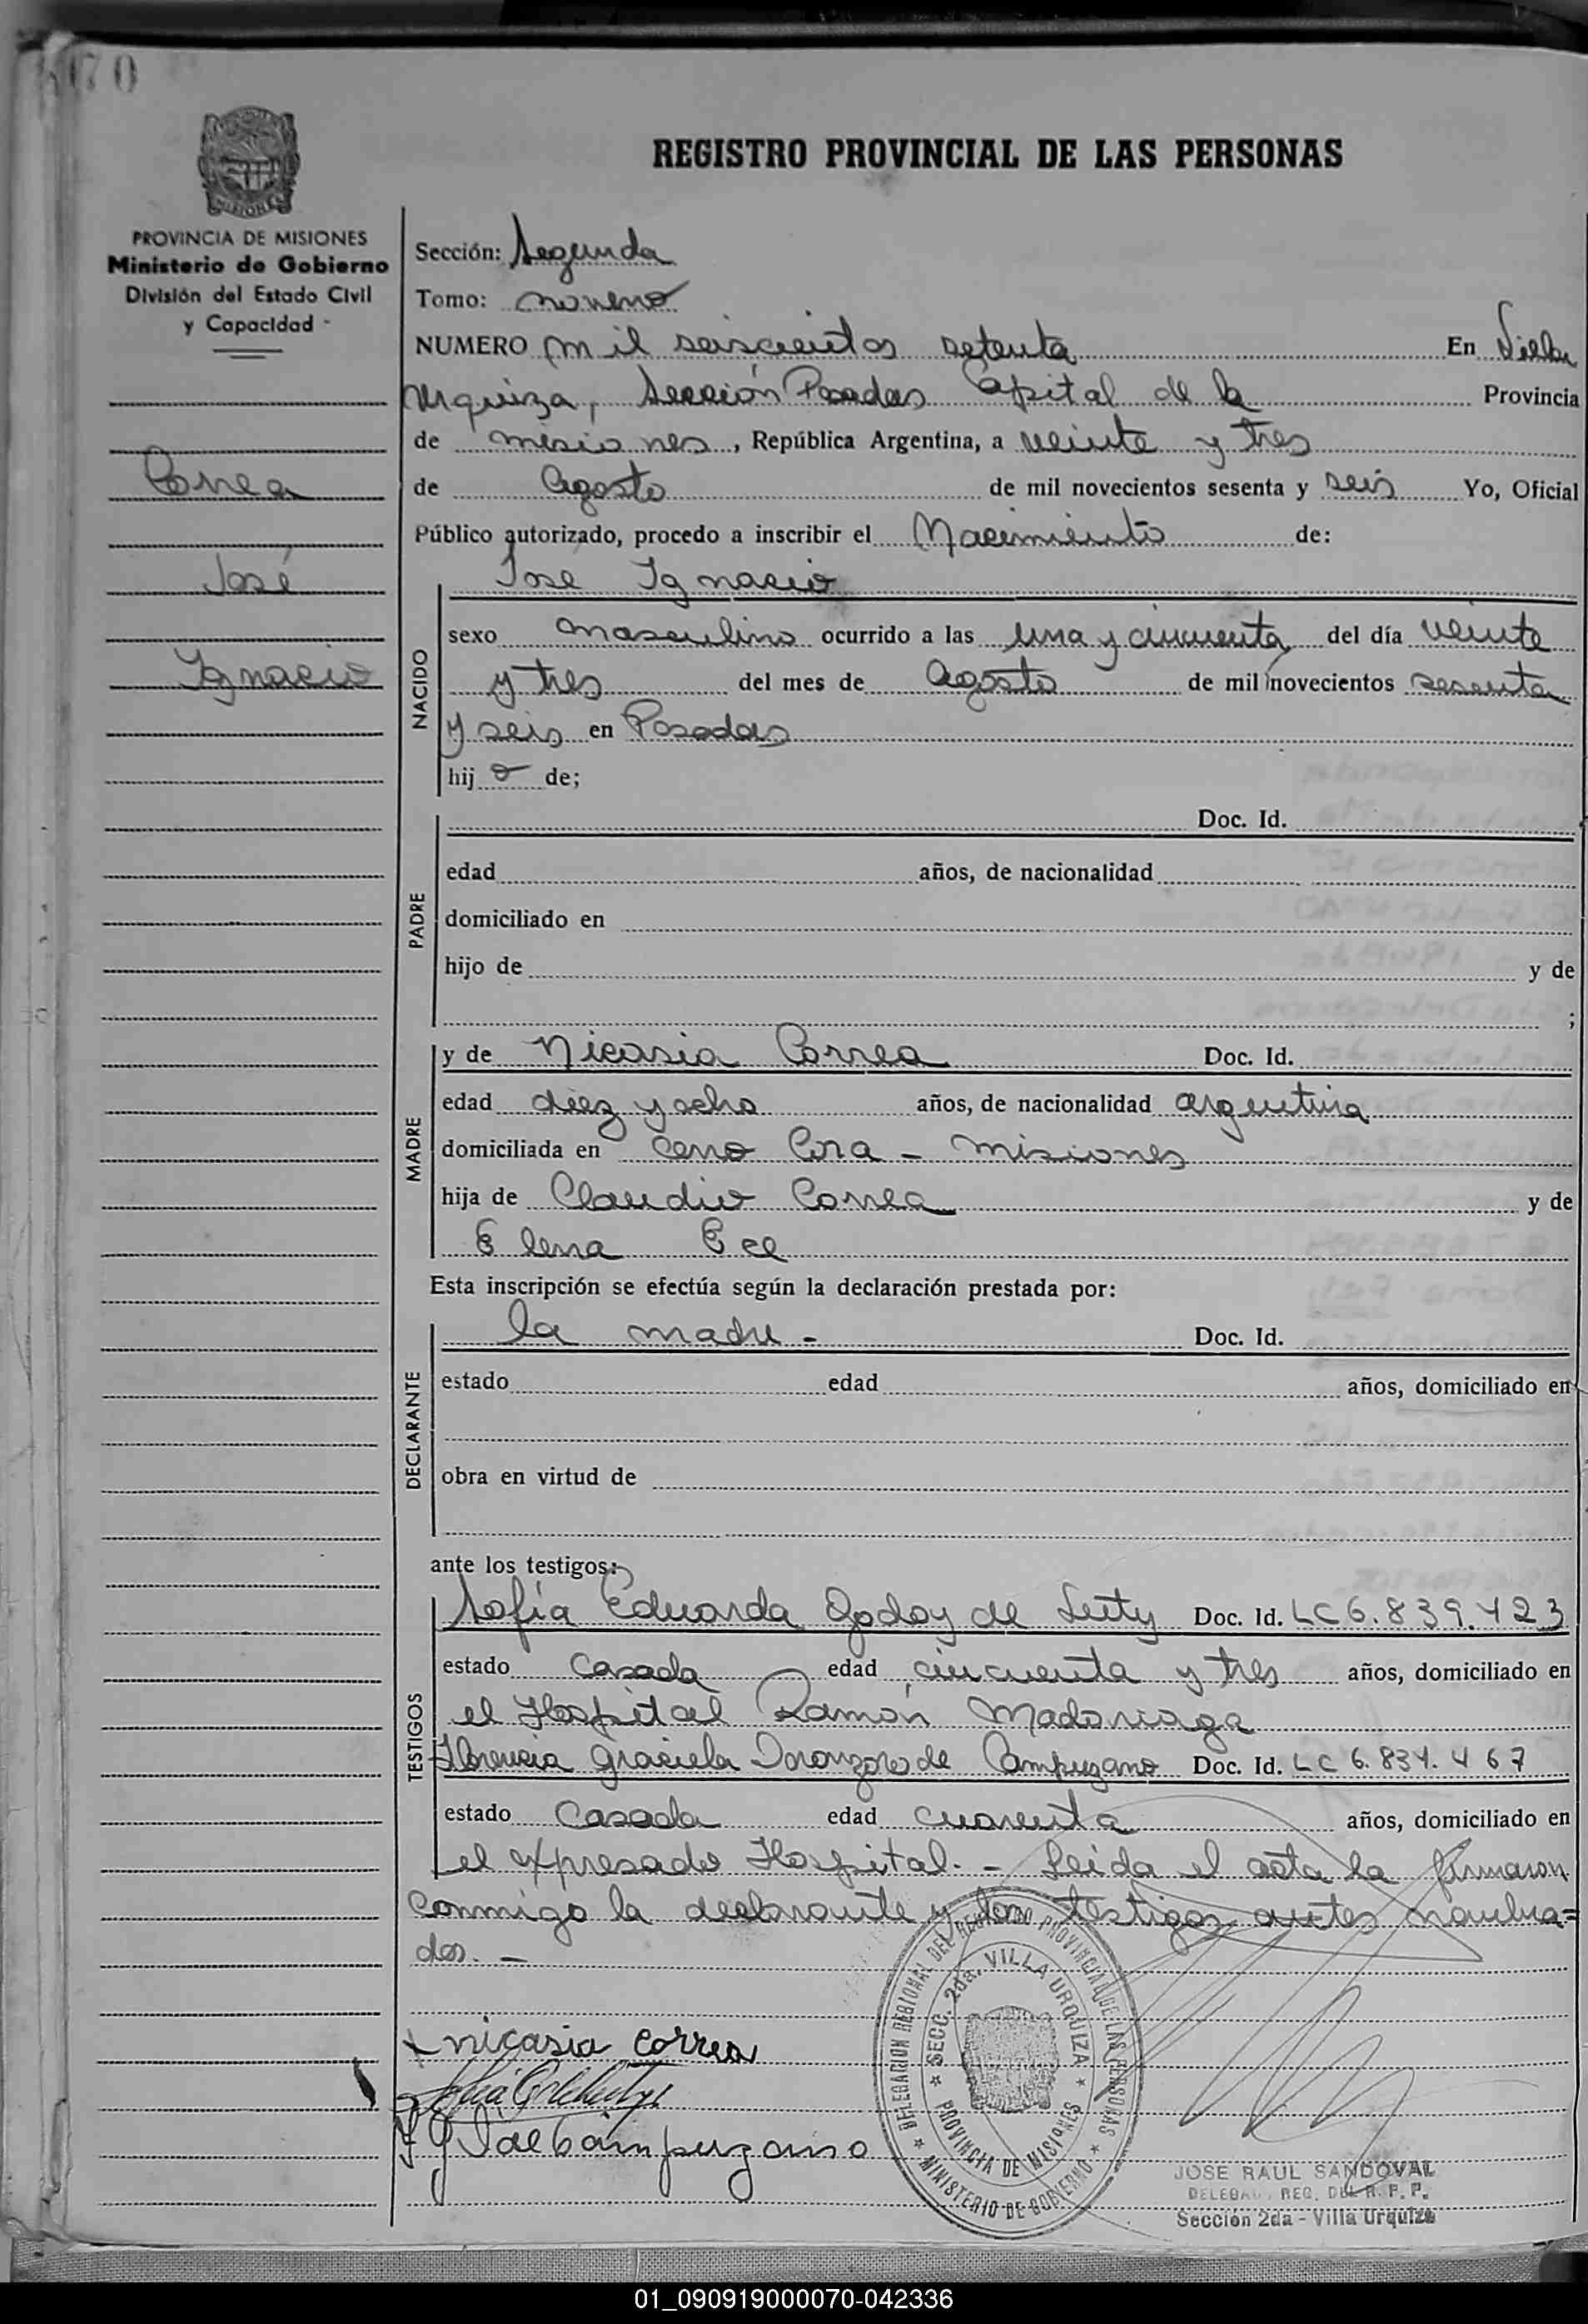 1670
REGISTRO PROVINCIAL DE LAS PERSONAS
MISIONES
PROVINCIA DE MISIONES
Ministerio de Gobierno
División del Estado Civil
y Capacidad -
Correa
José
Ignacio
Sección: Segunda
Tomo: noveno
NUMERO mil seiscientos setenta En Villa
Urquiza, Sección Posadas Capital de la Provincia
de misiones, República Argentina, a veinte y tres
de Agosto de mil novecientos sesenta y seis Yo, Oficial
Público autorizado, procedo a inscribir el Nacimiento de:
NACIDO
José Ignacio
sexo masculino ocurrido a las una y cincuenta del día veinte
y tres del mes de Agosto de mil novecientos sesenta
y seis en Posadas
hijo de;
PADRE
Doc. Id.
edad años, de nacionalidad
domiciliado en
hijo de y de
;
MADRE
y de Nicasia Correa Doc. Id.
edad diez y ocho años, de nacionalidad argentina
domiciliada en Cerro Cora - misiones
hija de Claudio Correa y de
Elena
Esta inscripción se efectúa según la declaración prestada por:
DECLARANTE
la madre - Doc. Id.
estado edad años, domiciliado en
obra en virtud de
ante los testigos:
TESTIGOS
Sofía Eduarda Godoy de Doc. Id. LC 6.839.423
estado Casada edad cincuenta y tres años, domiciliado en
el Hospital Ramón Madariaga
Florencia Graciela de Campuzano Doc. Id. LC 6.834.467
estado Casada edad cuarenta años, domiciliado en
el expresado Hospital. - Leida el acta la firmaron
conmigo la declarante y los testigos antes nombra=
dos. -
x nicasia correa
DELEGACION REGIONAL DEL REGISTRO PROVINCIAL DE LAS PERSONAS
* MINISTERIO DE GOBIERNO *
* SECC. 2da. VILLA URQUIZA *
PROVINCIA DE MISIONES
JOSE RAUL SANDOVAL
DELEGADO REG. DEL R. P. P.
Sección 2da - Villa Urquiza
01_090919000070-042336